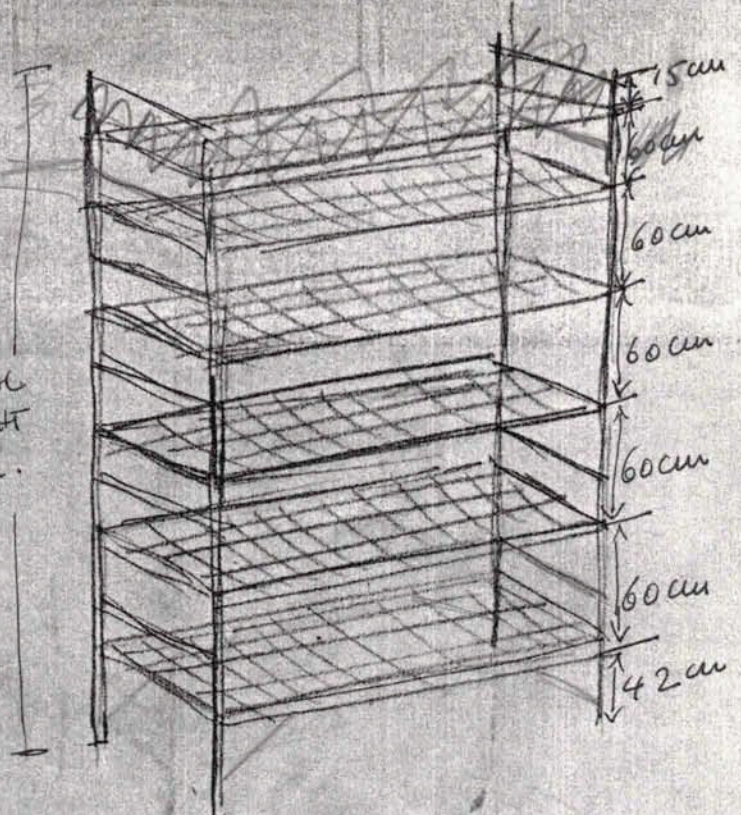 15cm
60cm
60cm
60cm
60cm
60cm
42cm